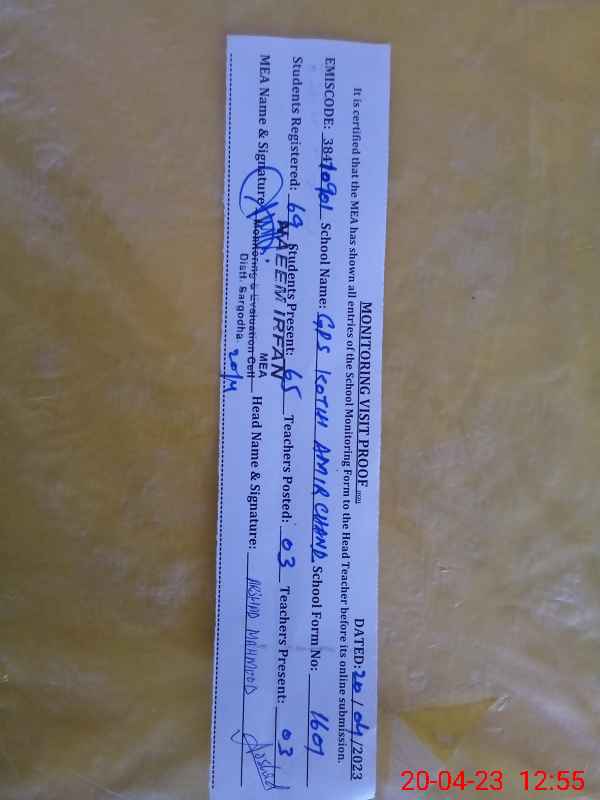 MONITORING VISIT PROOF DATED: 20/04/2023
It is certified that the MEA has shown all entries of the School Monitoring Form to the Head Teacher before its online submission.
EMISCODE: 38410901 School Name: GPS KOTH AMIR CHAND School Form No: 1601
Students Registered: 69 Students Present: 65 Teachers Posted: 03 Teachers Present: 03
NAEEM IRFAN
MEA
MEA Name & Signature Head Name & Signature: ARSHAD MAHMOOD Arshad
Monitoring & Evaluation Cell
Distt. Sargodha
20/4
20-04-23 12:55